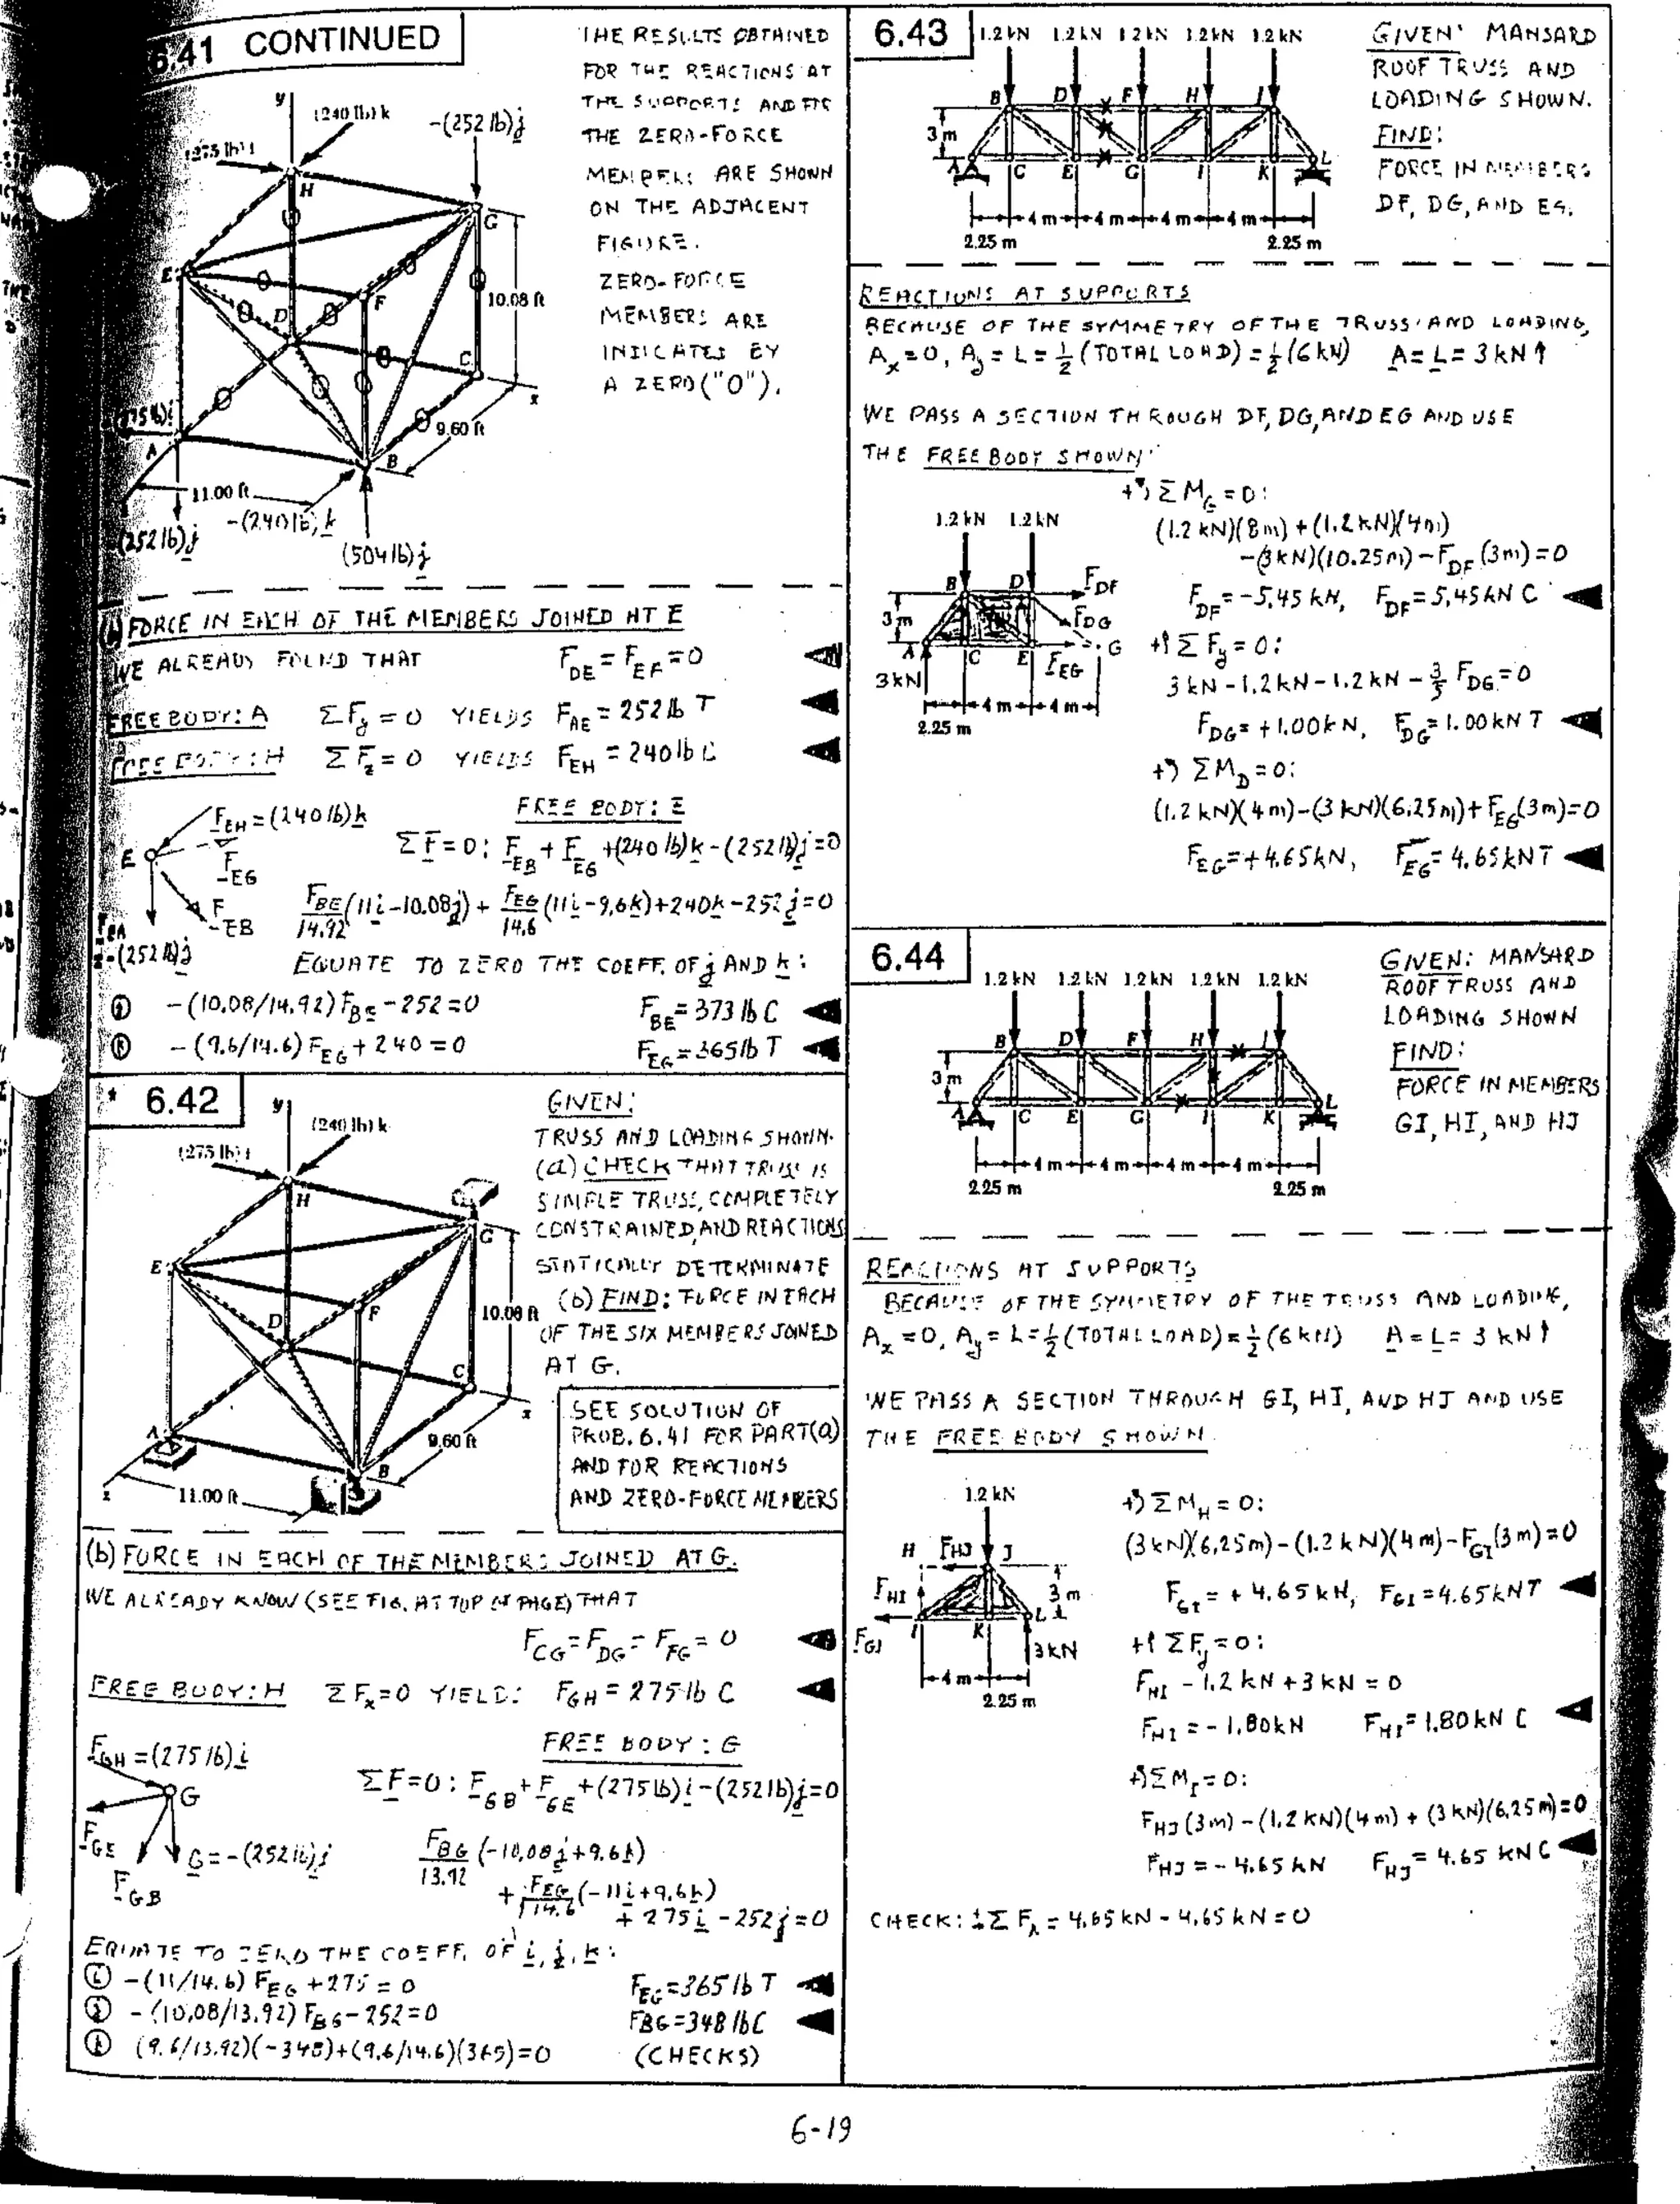 6.41 CONTINUED
THE RESULTS OBTAINED
FOR THE REACTIONS AT
THE SUPPORTS AND FOR
THE ZERO-FORCE
MEMBERS ARE SHOWN
ON THE ADJACENT
FIGURE.
ZERO-FORCE
MEMBERS ARE
INDICATED BY
A ZERO ("0").
y
(240 lb) k
-(252 lb) j
(275 lb) i
H
G
E
F
10.08 ft
D
C
x
9.60 ft
A
B
11.00 ft
-(240 lb) k
(252 lb) j
(504 lb) j
(b) FORCE IN EACH OF THE MEMBERS JOINED AT E
WE ALREADY FOUND THAT F_DE = F_EF = 0
FREE BODY: A ΣF_y = 0 YIELDS F_AE = 252 lb T
FREE BODY: H ΣF_z = 0 YIELDS F_EH = 240 lb C
F_EH = (240 lb) k
FREE BODY: E
E
ΣF = 0: F_EB + F_EG + (240 lb) k - (252 lb) j = 0
F_EG
F_EB
F_BE/14.92 (11i - 10.08j) + F_EG/14.6 (11i - 9.6k) + 240k - 252j = 0
F_EA
= -(252 lb) j
EQUATE TO ZERO THE COEFF. OF j AND k:
(j) -(10.08/14.92) F_BE - 252 = 0 F_BE = 373 lb C
(k) -(9.6/14.6) F_EG + 240 = 0 F_EG = 365 lb T
* 6.42
GIVEN:
TRUSS AND LOADING SHOWN.
(a) CHECK THAT TRUSS IS
SIMPLE TRUSS, COMPLETELY
CONSTRAINED, AND REACTIONS
STATICALLY DETERMINATE
(b) FIND: FORCE IN EACH
OF THE SIX MEMBERS JOINED
AT G.
SEE SOLUTION OF
PROB. 6.41 FOR PART(a)
AND FOR REACTIONS
AND ZERO-FORCE MEMBERS
y
(240 lb) k
(275 lb) i
H
G
E
F
10.08 ft
D
C
x
A
9.60 ft
B
z
11.00 ft
(b) FORCE IN EACH OF THE MEMBERS JOINED AT G.
WE ALREADY KNOW (SEE FIG. AT TOP OF PAGE) THAT
F_CG = F_DG = F_FG = 0
FREE BODY: H ΣF_x = 0 YIELDS F_GH = 275 lb C
F_GH = (275 lb) i
FREE BODY: G
G
ΣF = 0: F_GB + F_GE + (275 lb) i - (252 lb) j = 0
F_GE
G = -(252 lb) j
F_GB
F_BG/13.92 (-10.08j + 9.6k)
+ F_EG/14.6 (-11i + 9.6k)
+ 275i - 252j = 0
EQUATE TO ZERO THE COEFF. OF i, j, k:
(i) -(11/14.6) F_EG + 275 = 0 F_EG = 365 lb T
(j) -(10.08/13.92) F_BG - 252 = 0 F_BG = 348 lb C
(k) (9.6/13.92)(-348) + (9.6/14.6)(365) = 0 (CHECKS)
6.43
1.2 kN 1.2 kN 1.2 kN 1.2 kN 1.2 kN
GIVEN: MANSARD
ROOF TRUSS AND
LOADING SHOWN.
FIND:
FORCE IN MEMBERS
DF, DG, AND EG.
B D F H J
3 m
A C E G I K L
4 m 4 m 4 m 4 m
2.25 m 2.25 m
REACTIONS AT SUPPORTS
BECAUSE OF THE SYMMETRY OF THE TRUSS AND LOADING,
A_x = 0, A_y = L = 1/2 (TOTAL LOAD) = 1/2 (6 kN) A = L = 3 kN ↑
WE PASS A SECTION THROUGH DF, DG, AND EG AND USE
THE FREE BODY SHOWN:
+↺ ΣM_G = 0:
(1.2 kN)(8 m) + (1.2 kN)(4 m)
-(3 kN)(10.25 m) - F_DF (3 m) = 0
F_DF = -5.45 kN, F_DF = 5.45 kN C
+↑ ΣF_y = 0:
3 kN - 1.2 kN - 1.2 kN - 3/5 F_DG = 0
F_DG = +1.00 kN, F_DG = 1.00 kN T
+↺ ΣM_D = 0:
(1.2 kN)(4 m) - (3 kN)(6.25 m) + F_EG (3 m) = 0
F_EG = +4.65 kN, F_EG = 4.65 kN T
1.2 kN 1.2 kN
B D F_DF
3 m F_DG
A C E F_EG G
3 kN
4 m 4 m
2.25 m
6.44
1.2 kN 1.2 kN 1.2 kN 1.2 kN 1.2 kN
GIVEN: MANSARD
ROOF TRUSS AND
LOADING SHOWN
FIND:
FORCE IN MEMBERS
GI, HI, AND HJ
B D F H J
3 m
A C E G I K L
4 m 4 m 4 m 4 m
2.25 m 2.25 m
REACTIONS AT SUPPORTS
BECAUSE OF THE SYMMETRY OF THE TRUSS AND LOADING,
A_x = 0, A_y = L = 1/2 (TOTAL LOAD) = 1/2 (6 kN) A = L = 3 kN ↑
WE PASS A SECTION THROUGH GI, HI, AND HJ AND USE
THE FREE BODY SHOWN.
1.2 kN
H F_HJ J
F_HI 3 m
F_GI I K L
3 kN
4 m
2.25 m
+↺ ΣM_H = 0:
(3 kN)(6.25 m) - (1.2 kN)(4 m) - F_GI (3 m) = 0
F_GI = +4.65 kN, F_GI = 4.65 kN T
+↑ ΣF_y = 0:
F_HI - 1.2 kN + 3 kN = 0
F_HI = -1.80 kN F_HI = 1.80 kN C
+↺ ΣM_I = 0:
F_HJ (3 m) - (1.2 kN)(4 m) + (3 kN)(6.25 m) = 0
F_HJ = -4.65 kN F_HJ = 4.65 kN C
CHECK: +→ ΣF_x = 4.65 kN - 4.65 kN = 0
6-19